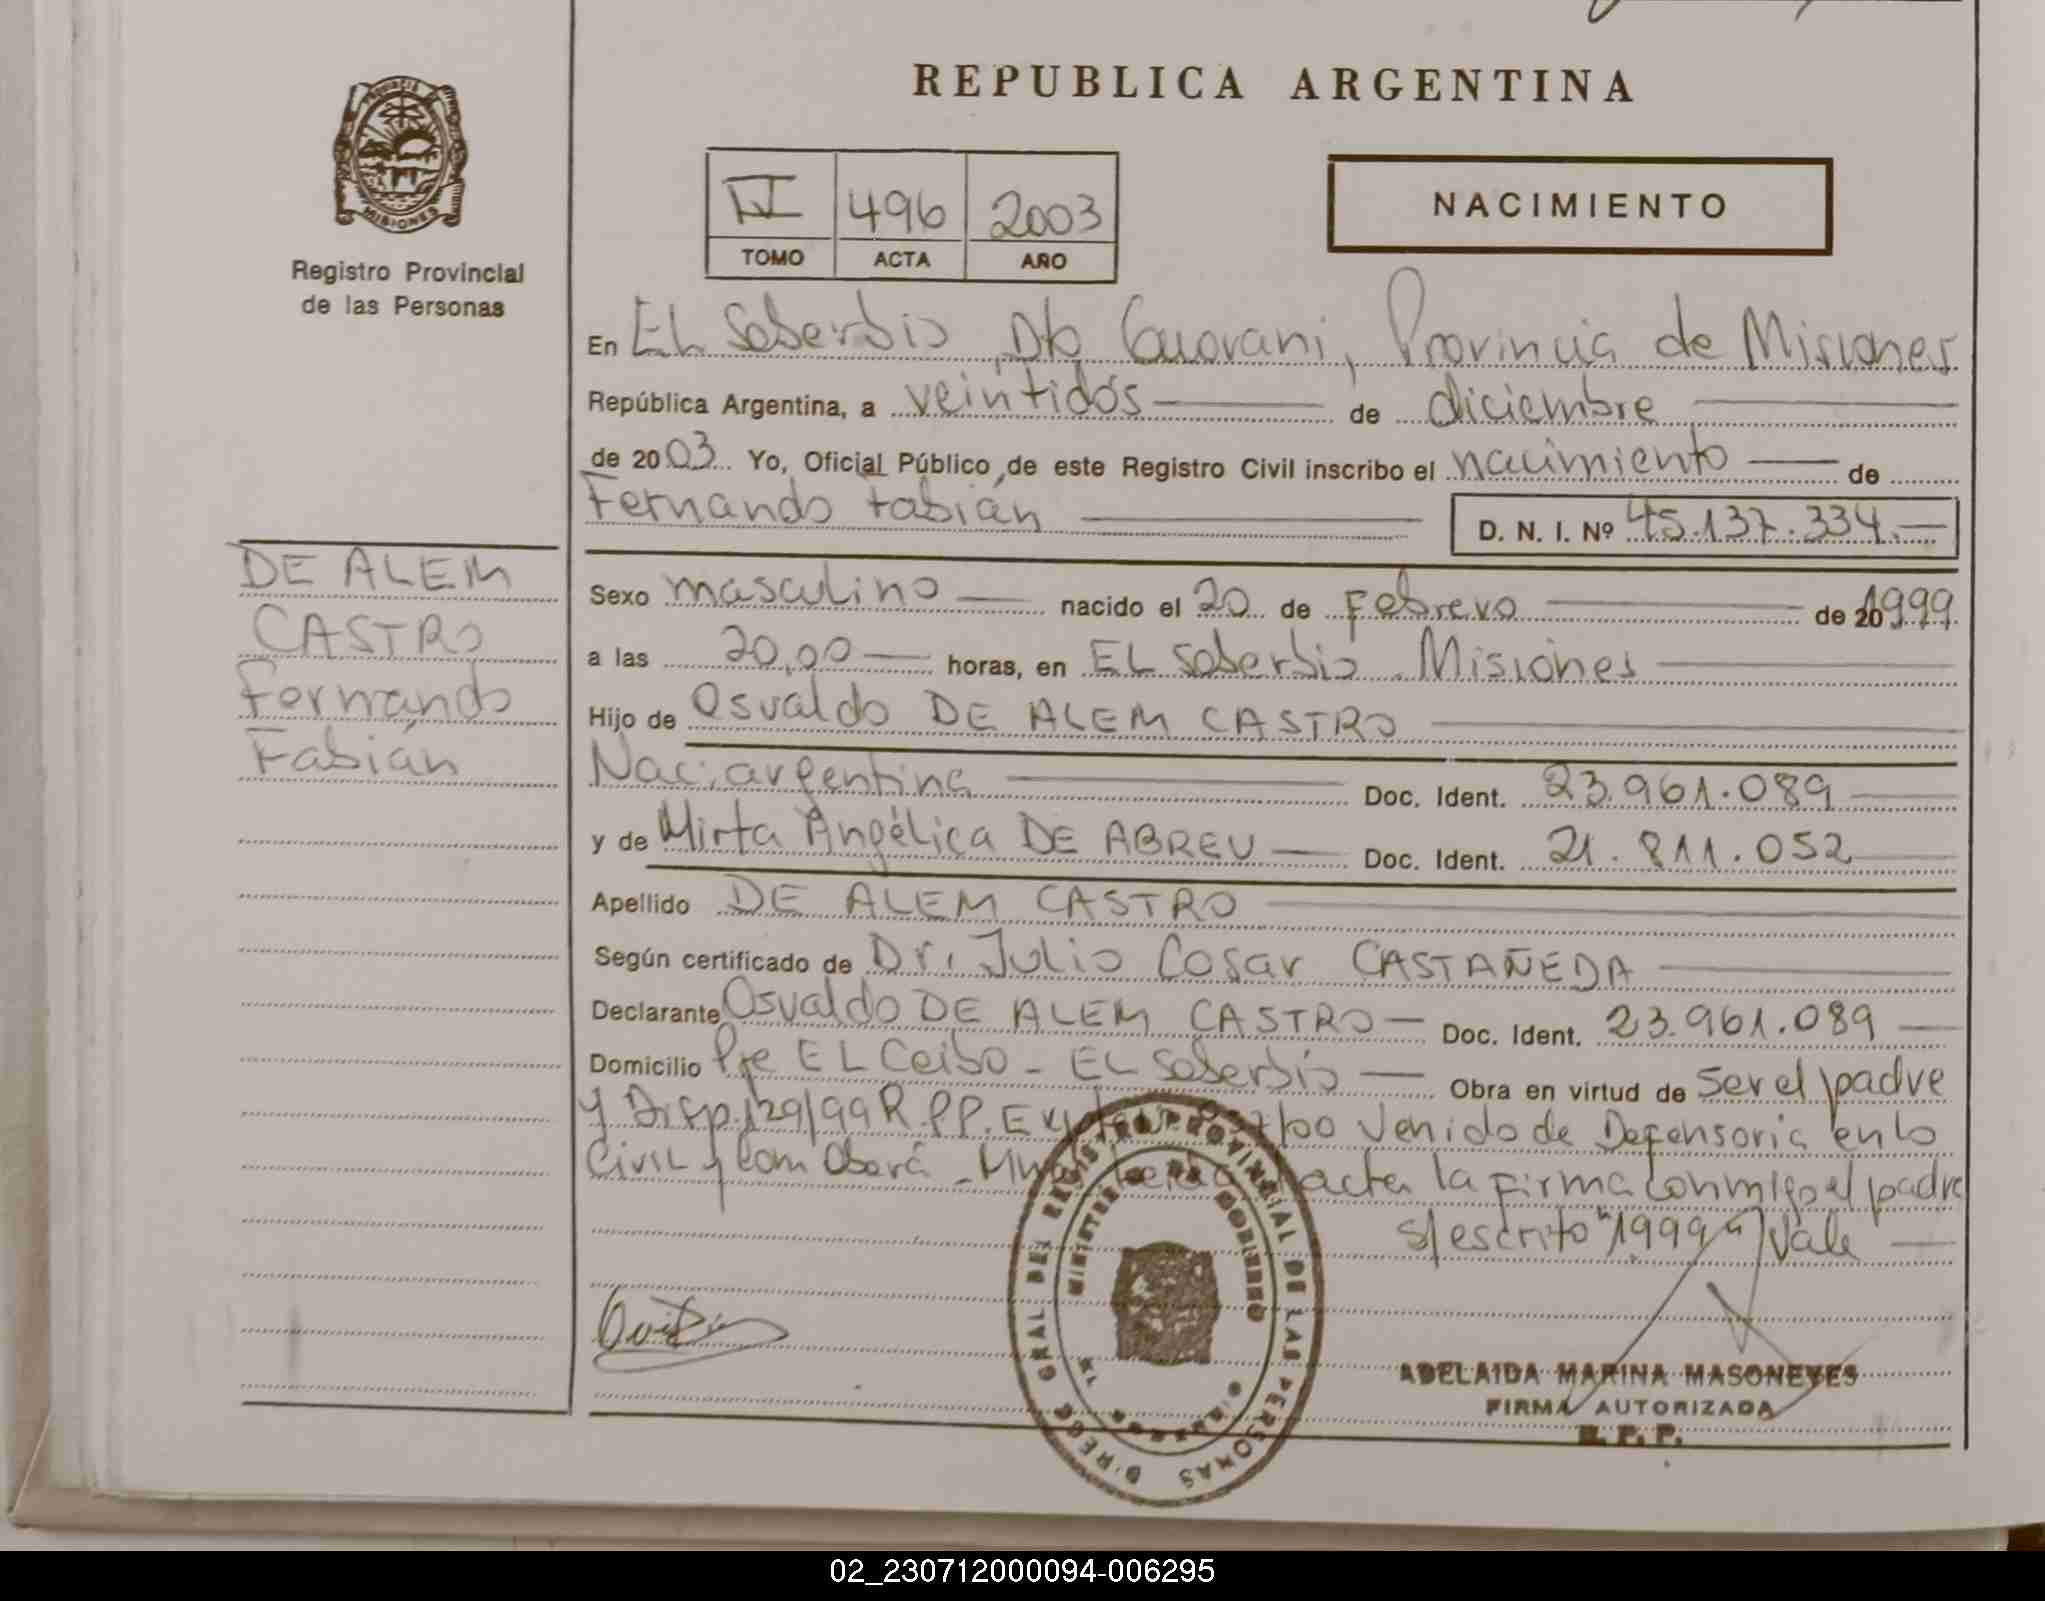 REPUBLICA ARGENTINA
PROVINCIA DE MISIONES
Registro Provincial
de las Personas
IV 496 2003
TOMO ACTA AÑO
NACIMIENTO
En EL Soberbio, Dto Guarani, Provincia de Misiones
República Argentina, a veintidós de diciembre
de 2003 Yo, Oficial Público de este Registro Civil inscribo el nacimiento de
Fernando Fabián D. N. I. Nº 45.137.334.
DE ALEM
CASTRO
Fernando
Fabián
Sexo masculino nacido el 20 de Febrero de 20 1999
a las 20,00 horas, en EL Soberbio. Misiones
Hijo de Osvaldo DE ALEM CASTRO
Nac. argentina Doc. Ident. 23.961.089
y de Mirta Angélica DE ABREU Doc. Ident. 21.811.052
Apellido DE ALEM CASTRO
Según certificado de Dr. Julio Cesar CASTAÑEDA
Declarante Osvaldo DE ALEM CASTRO Doc. Ident. 23.961.089
Domicilio Pje EL Ceibo - EL Soberbio Obra en virtud de ser el padre
y Disp. 129/99 R.P.P. /00 Venido de Defensoria en lo
Civil y Com Oberá - acta la firma conmigo el padre
s/escrito "1999" Vale
DIREC. GRAL DEL REGISTRO PROVINCIAL DE LAS PERSONAS
MINISTERIO DE GOBIERNO
ADELAIDA MARINA MASONEYES
FIRMA AUTORIZADA
R. P. P.
02_230712000094-006295